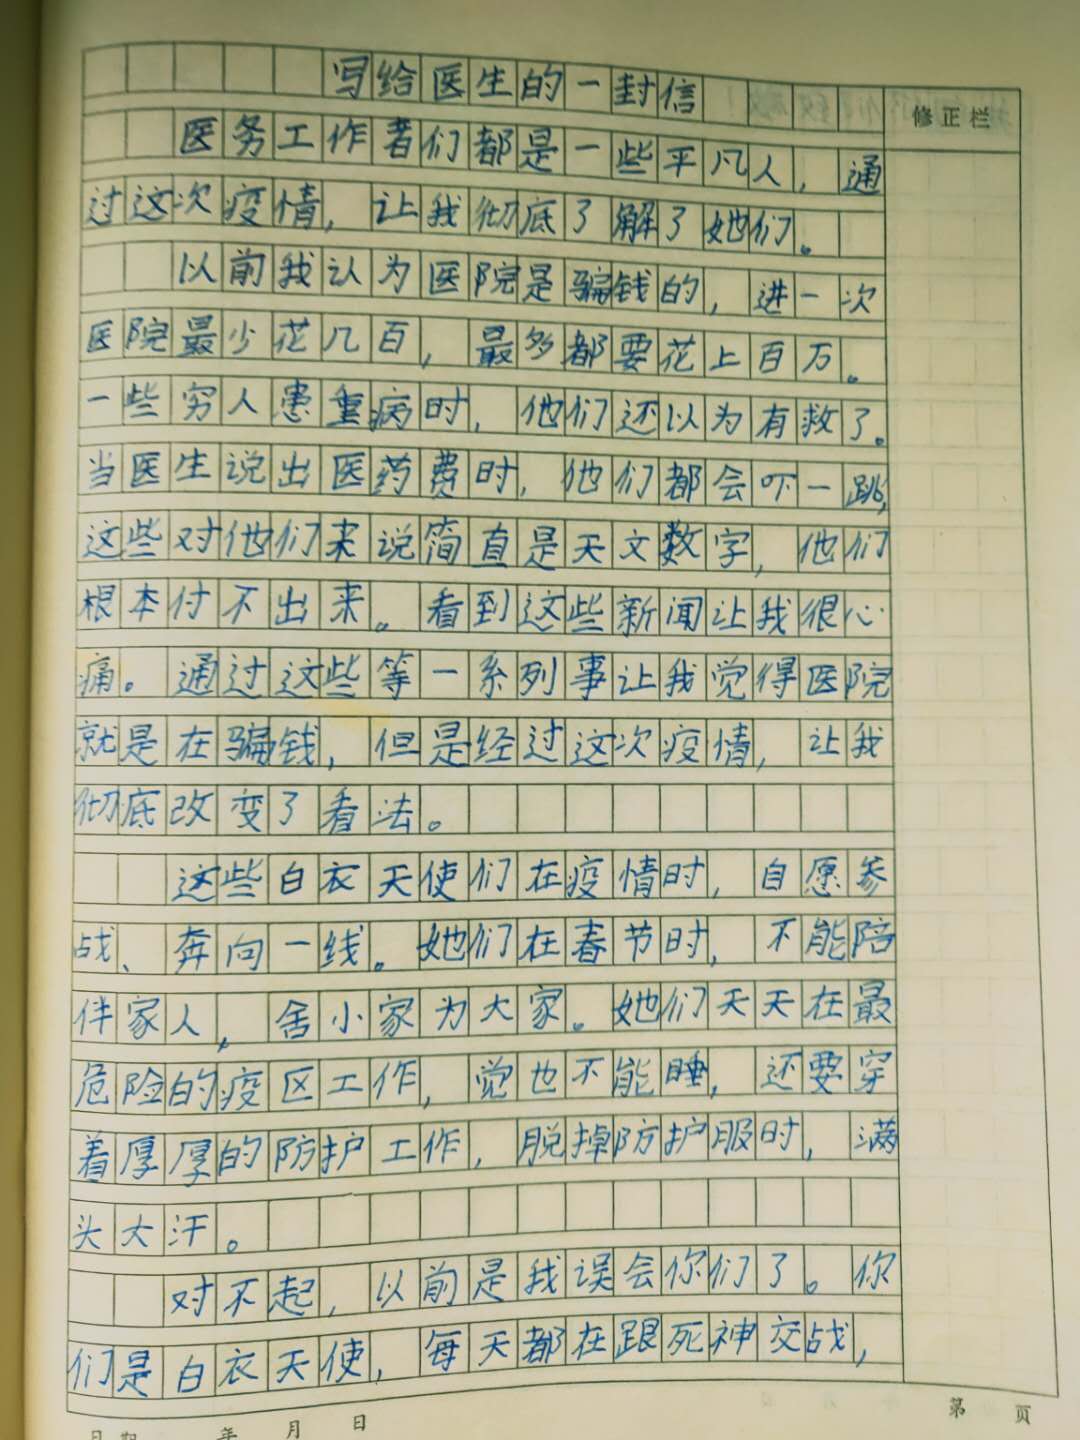 写给医生的一封信
修正栏
医务工作者们都是一些平凡人，通
过这次疫情，让我彻底了解了她们。
以前我认为医院是骗钱的，进一次
医院最少花几百，最多都要花上百万。
一些穷人患重病时，他们还以为有救了。
当医生说出医药费时，他们都会吓一跳，
这些对他们来说简直是天文数字，他们
根本付不出来。看到这些新闻让我很心
痛。通过这些等一系列事让我觉得医院
就是在骗钱，但是经过这次疫情，让我
彻底改变了看法。
这些白衣天使们在疫情时，自愿参
战、奔向一线。她们在春节时，不能陪
伴家人，舍小家为大家。她们天天在最
危险的疫区工作，觉也不能睡，还要穿
着厚厚的防护工作，脱掉防护服时，满
头大汗。
对不起，以前是我误会你们了。你
们是白衣天使，每天都在跟死神交战，
日期 年 月 日
第 页